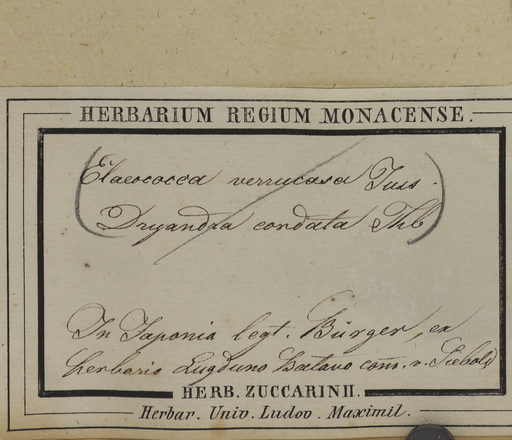 HERBARIUM REGIUM MONACENSE.
(Elaeococca verrucasa Juss.
Dryandra cordata Thb)
In Japonia legt. Bürger, ex
herbario Lugduno Batavo com. v. Siebold
HERB. ZUCCARINII.
Herbar. Univ. Ludov. Maximil.